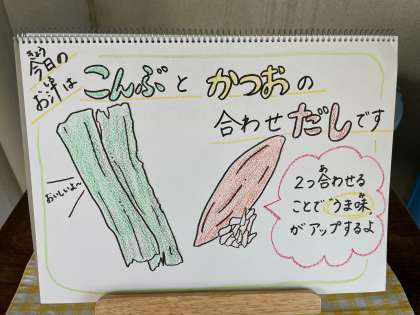 今日の
きょう
お汁は
しる
こんぶとかつおの
合わせだしです
おいしいよ〜
2つ合わせる
あ
ことで"うま味"
み
がアップするよ